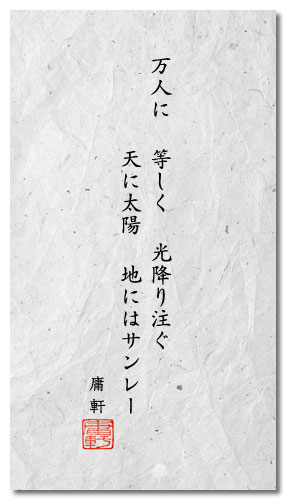 万人に 等しく 光降り注ぐ
天に太陽 地にはサンレー
庸軒
庸軒